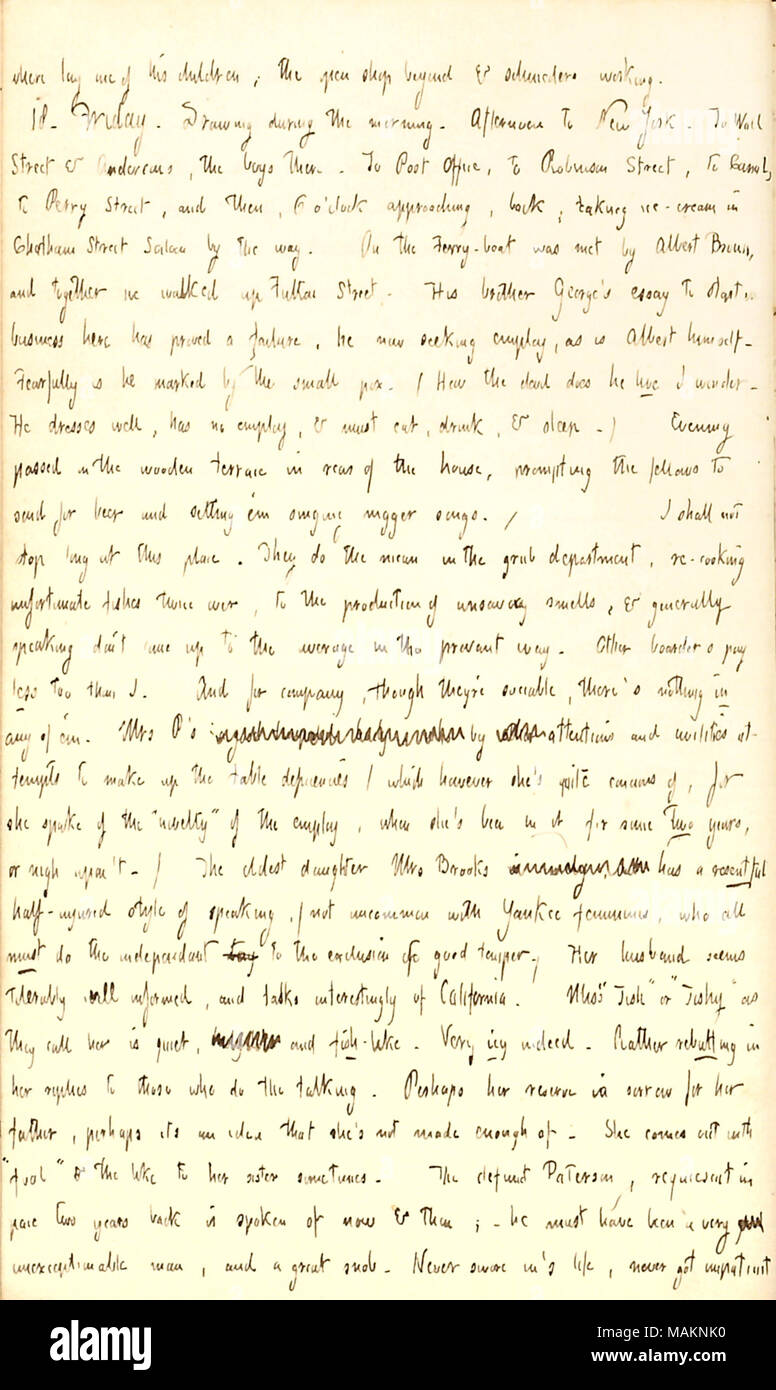 where lay one of his children; the open shop beyond & schneiders working.
18. Friday. Drawing during the morning. Afternoon to New York. To Wall
Street & Andersons, the boys there. To Post Office, to Robinson Street, to Canal,
to Perry Street, and then, 6 o'clock approaching, back, taking ice-cream in
Chatham Street Saloon by the way. On the Ferry-boat was met by Albert Brown,
and together we walked up Fulton Street. His brother George's essay to start in
business here has proved a failure, he now seeking employ, as is Albert himself.
Fearfully is he marked by the small pox. / How the devil does he live I wonder.
He dresses well, has no employ, & must eat, drink, & sleep. / Evening
passed in the wooden terrace in rear of the house, prompting the fellows to
send for beer and setting em singing nigger songs. / I shall not
stop long at this place. They do the mean in the grub department, re-cooking
unfortunate fishes twice over, to the production of unsavory smells, & generally
speaking don't come up to the average in the provant way. Other boarders pay
less too than I. And for company, though they're sociable, there's nothing in
any of em. Mrs P's by attentions and civilities at-
tempts to make up the table deficiencies / which however she's quite concious of, for
she spoke of the "novelty" of the employ, when she's been in it for some two years,
or nigh upon't. / The eldest daughter Mrs Brooks has a resentful
half-injured style of speaking, / not uncommon with Yankee feminines, who all
must do the independant to the exclusion of good temper. / Her husband seems
tolerably well informed, and talks interestingly of California. Miss "Tish" or "Tishy" as
they call her is quiet, and fish-like. Very icy indeed. Rather rebutting in
her replies to those who do the talking. Perhaps her reserve is sorrow for her
father, perhaps its an idea that she's not made enough of. She comes out with
"fool" & the like to her sister sometimes. The defunct Paterson, requiescat in
pace two years back is spoken of now & then; - he must have been a very
unexceptionable man, and a great snob. Never swore in's life, never got impatient
alamy
Image ID: MAKNK0
www.alamy.com